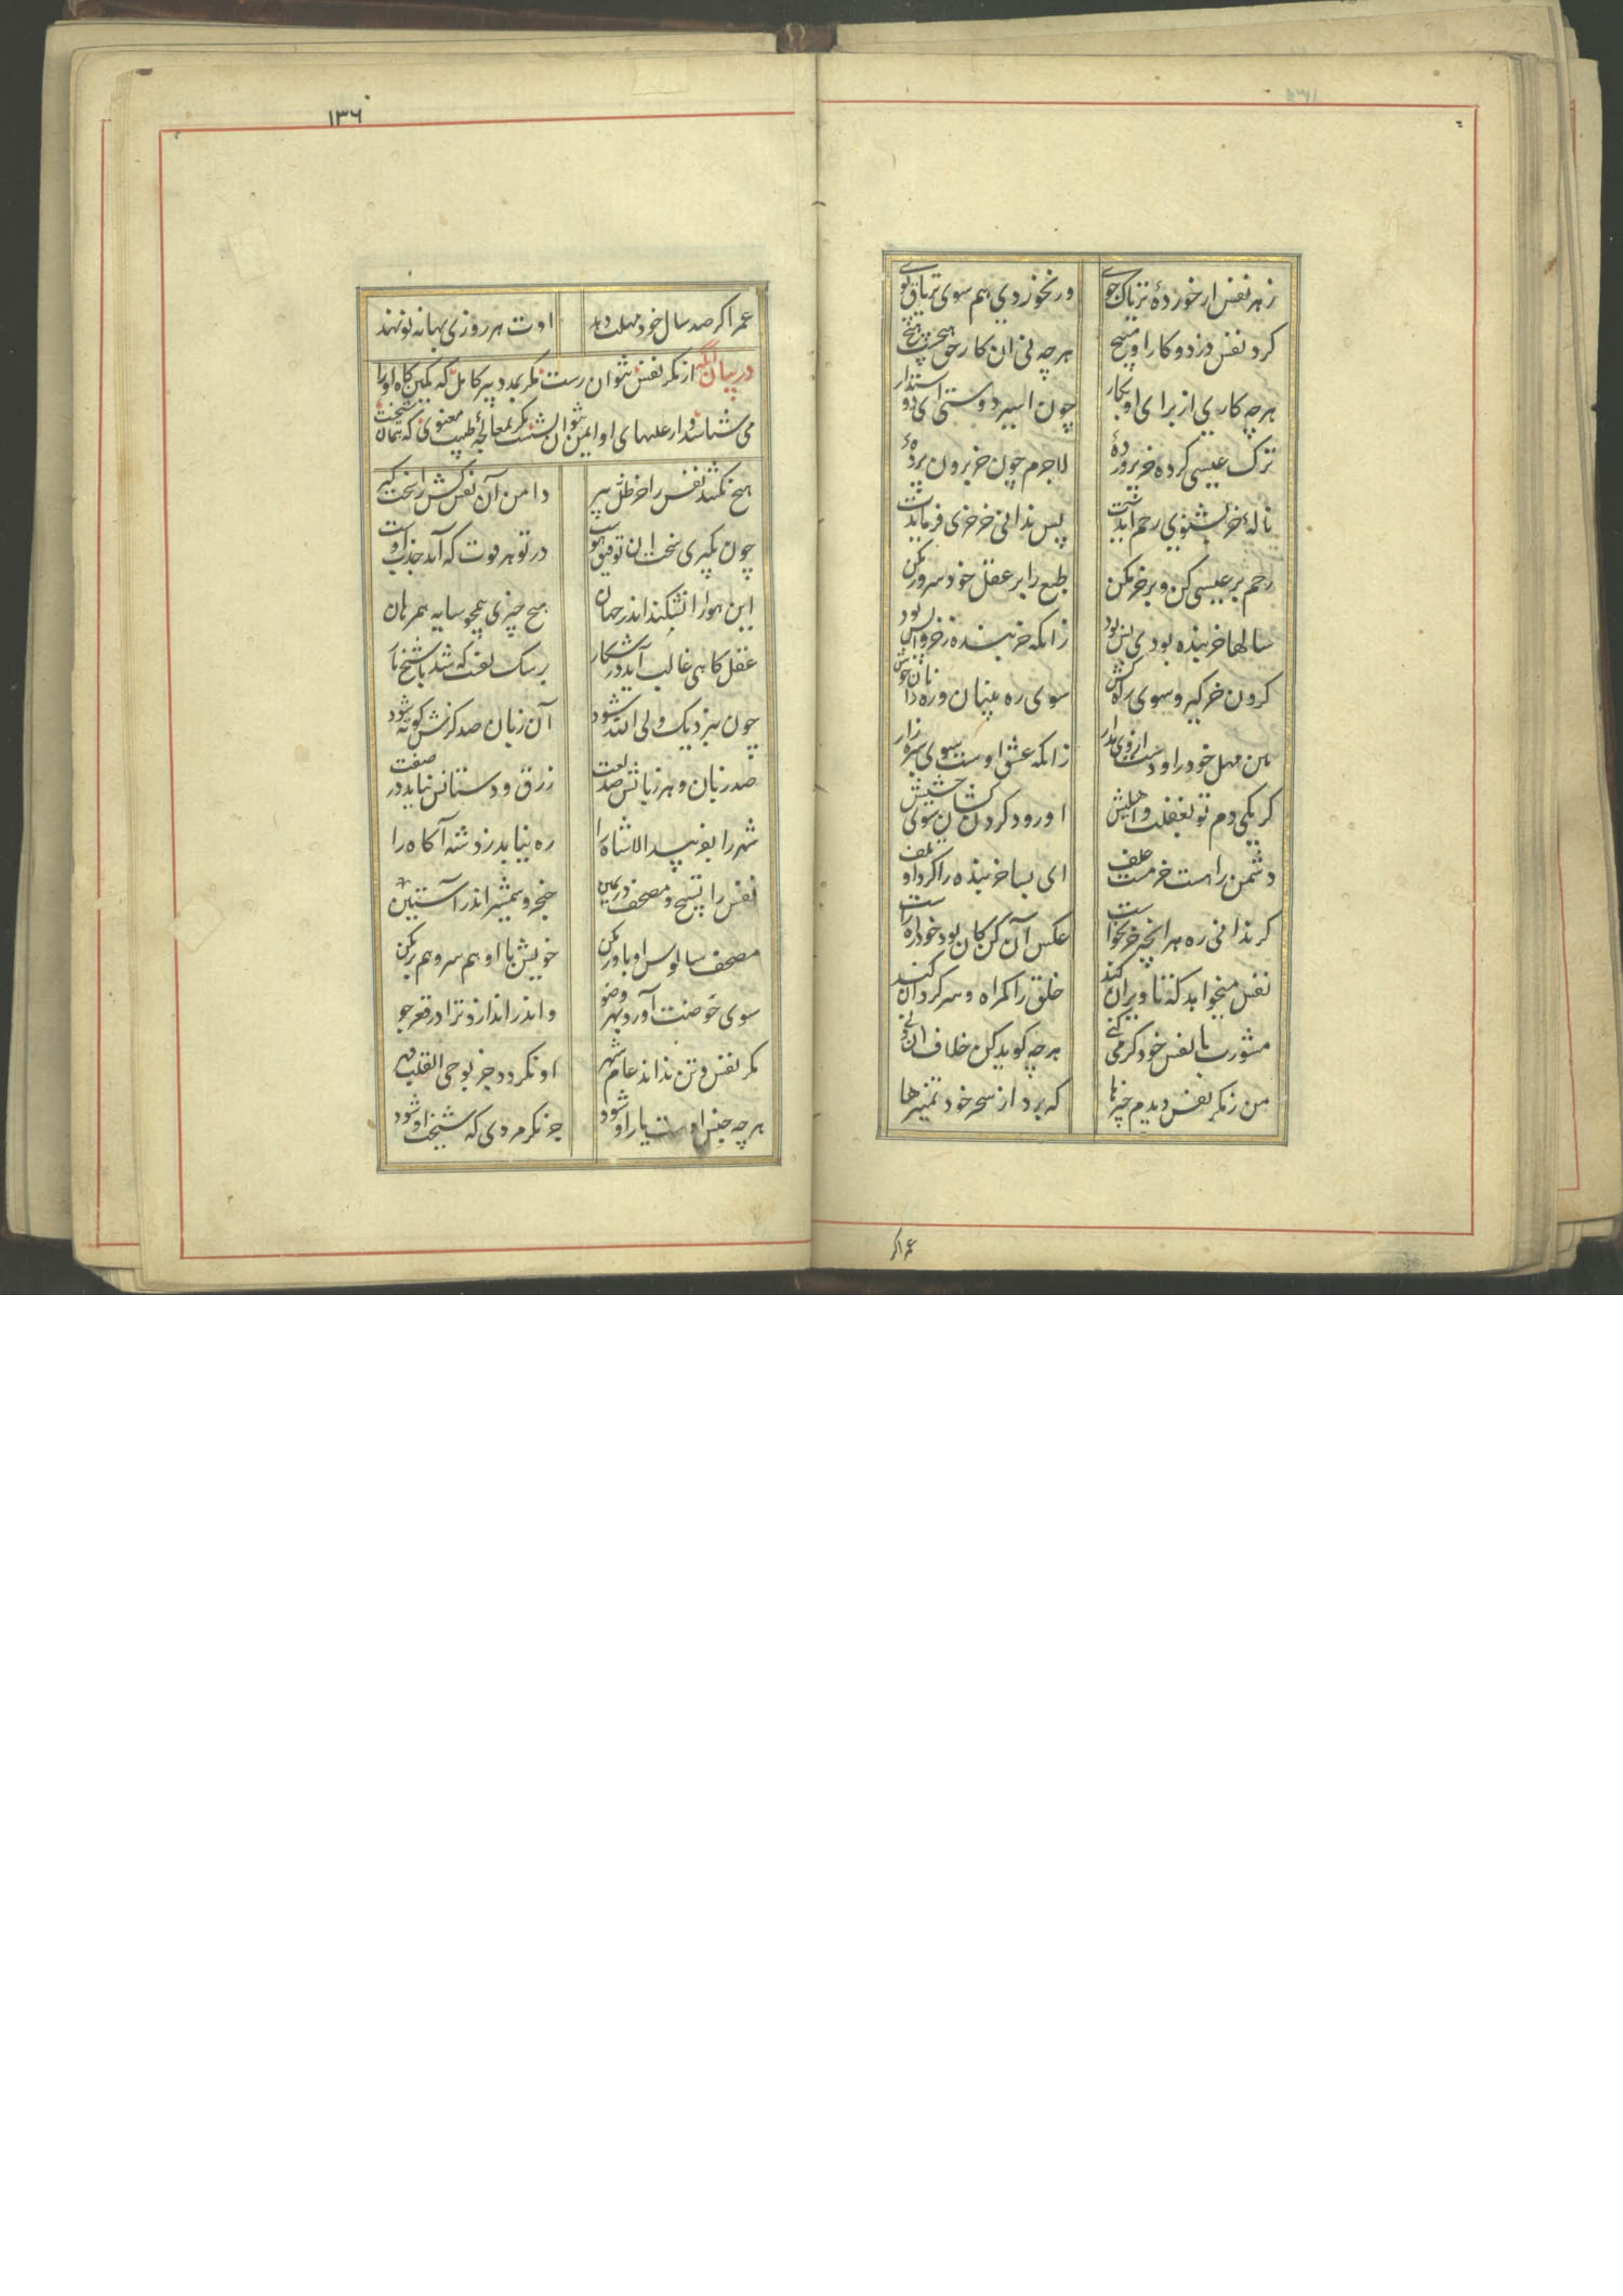 زهر نفس ار خوردۀ تریاک جوی
ور نخوردی هم سوی تریاق پوی
کرد نفس دزد و کار او مسیح
هر چه نی آن کار حق هیچست هیچ
هر چه کاری از برای او بکار
چون اسیر دوستی ای دوستدار
ترک عیسی کرده خر پروردۀ
لاجرم چون خر برون پردۀ
نالۀ خر بشنوی رحم آیدت
پس ندانی خر خری فرمایدت
رحم بر عیسی کن و بر خر مکن
طبع را بر عقل خود سرور مکن
سالها خر بنده بودی بس بود
زانکه خر بنده ز خر واپس بود
کردن خر کیر و سوی راه کش
سوی ره بینان و ره دانان خوش
هین مهل خر را و دست از وی مدار
زانکه عشق اوست سوی سبزه زار
کر یکی دم تو بغفلت واهلیش
او رود کردن کشان سوی حشیش
دشمن راهست خر مست علف
ای بسا خر بنده را کرد او تلف
کر ندانی ره هر آنچه خر بخواست
عکس آن کن کان بود خود راه راست
نفس میخواهد که تا ویران کند
خلق را کمراه و سرکردان کند
مشورت با نفس خود کر می کنی
هر چه کوید کن خلاف آن دنی
من ز مکر نفس دیدم چیزها
که برد از سحر خود تمییزها
عمر اکر
۱۳۶
عمر اکر صد سال خود مهلت دهد
اوت هر روزی بهانه نو نهد
در بیان آنکه از مکر نفس نتوان رست مکر بمدد پیر کامل که کمین کاه او را
می شناسد و از علتهای او ایمن نتوان نشست مکر بمعالجۀ طبیب معنوی که همان شیخست
هیچ نکشد نفس را جز ظل پیر
دامن آن نفس کش را سخت کیر
چون بگیری سخت آن توفیق هوست
در تو هر قوت که آید جذب اوست
این هوا را نشکند اندر جهان
هیچ چیزی همچو سایه همرهان
عقل کاهی غالب آید در شکار
بر سک نفست که باشد شیخ یار
چون بنزدیک ولی الله شود
آن زبان صد کزش کوته شود
صد زبان و هر زبانش صد لغت
زرق و دستانش نیاید در صفت
شهر را بفریبد الا شاه را
ره نیابد زد شه آکاه را
نفس را تسبیح و مصحف در یمین
خنجر و شمشیر اندر آستین
مصحف سالوس او باور مکن
خویش با او هم سر و هم بر مکن
سوی حوضت آورد بهر وضو
واندر اندازد ترا در قعر جو
مکر نفس و تن نداند عام شهر
او نکردد جز بوحی القلب قهر
هر چه جنس اوست یار او شود
جز مکر مردی که شیخت او شود